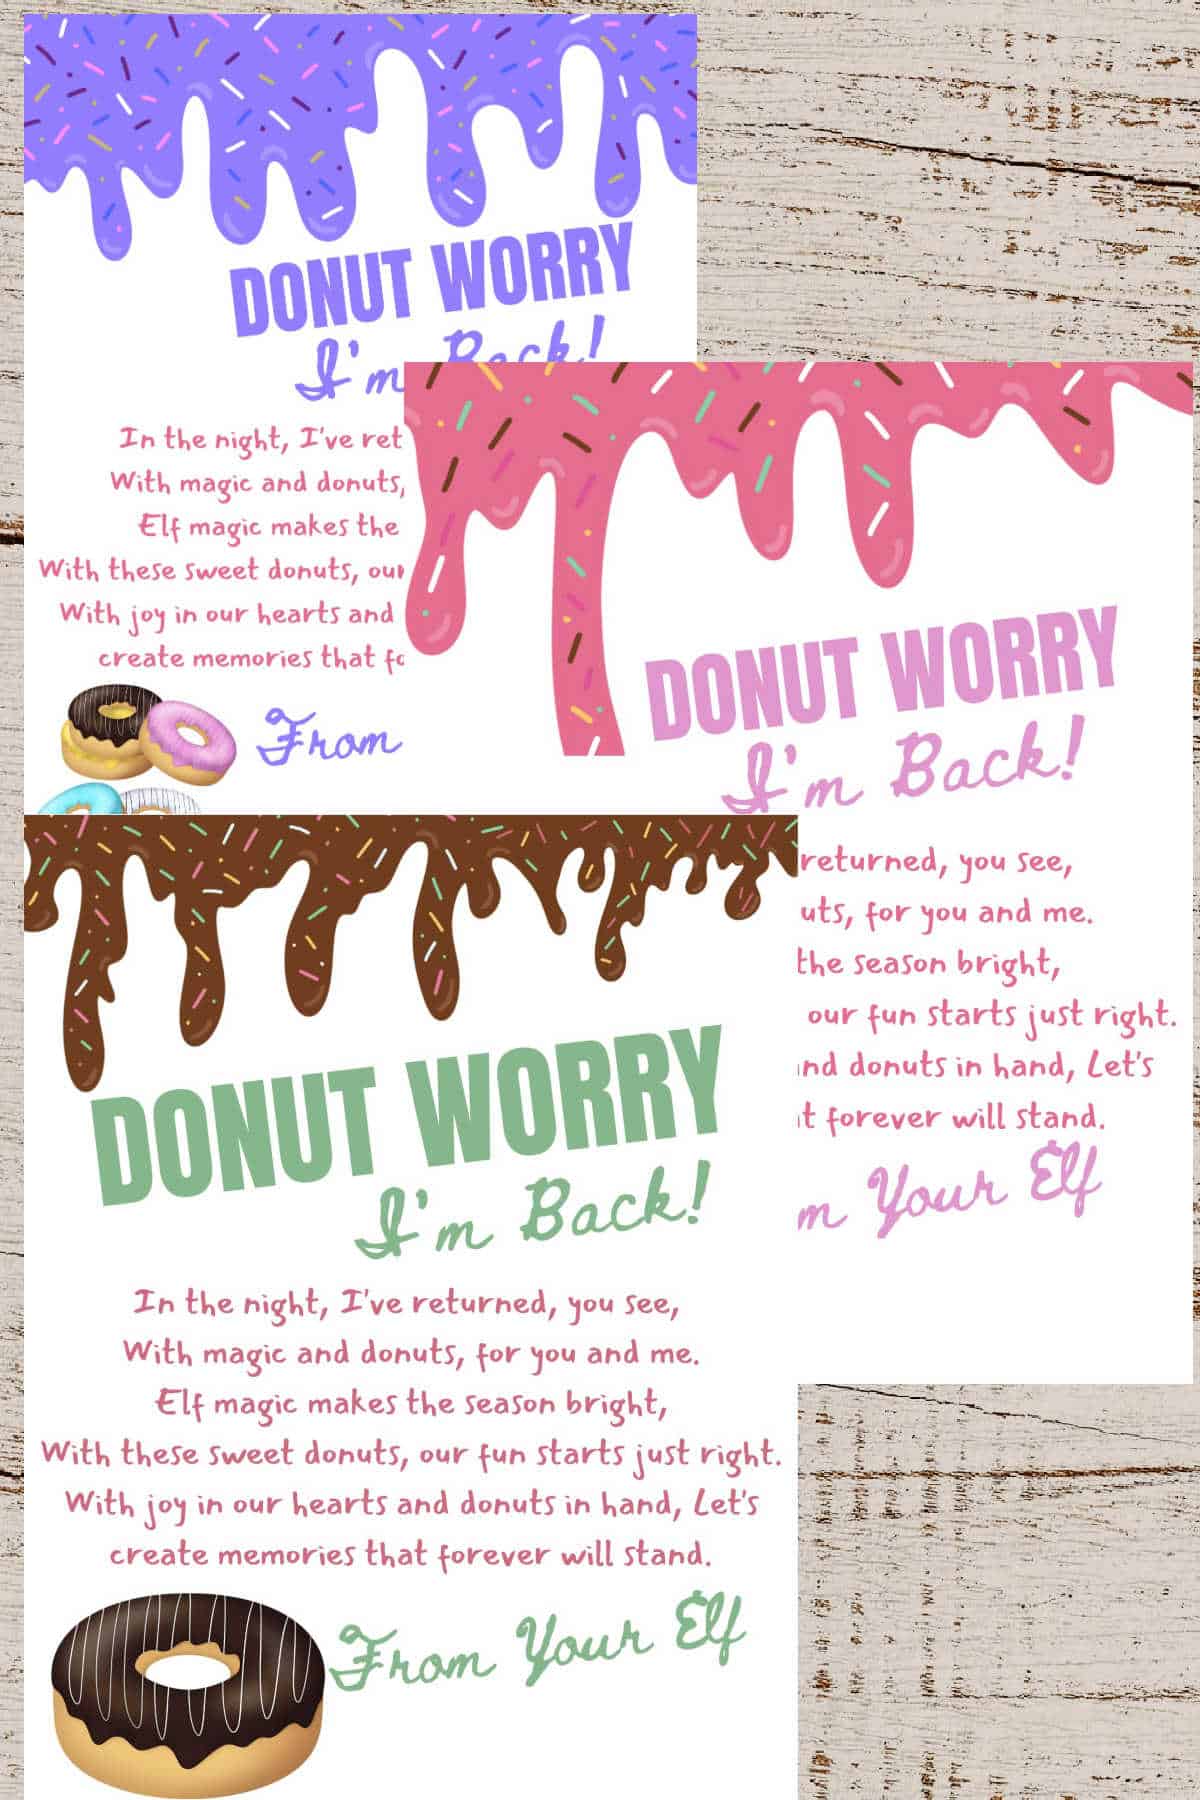 DONUT WORRY
I'm Back!
In the night, I've ret
With magic and donuts,
Elf magic makes the
With these sweet donuts, our
With joy in our hearts and
create memories that fo
From
DONUT WORRY
I'm Back!
returned, you see,
uts, for you and me.
the season bright,
our fun starts just right.
nd donuts in hand, Let's
t forever will stand.
m Your Elf
DONUT WORRY
I'm Back!
In the night, I've returned, you see,
With magic and donuts, for you and me.
Elf magic makes the season bright,
With these sweet donuts, our fun starts just right.
With joy in our hearts and donuts in hand, Let's
create memories that forever will stand.
From Your Elf